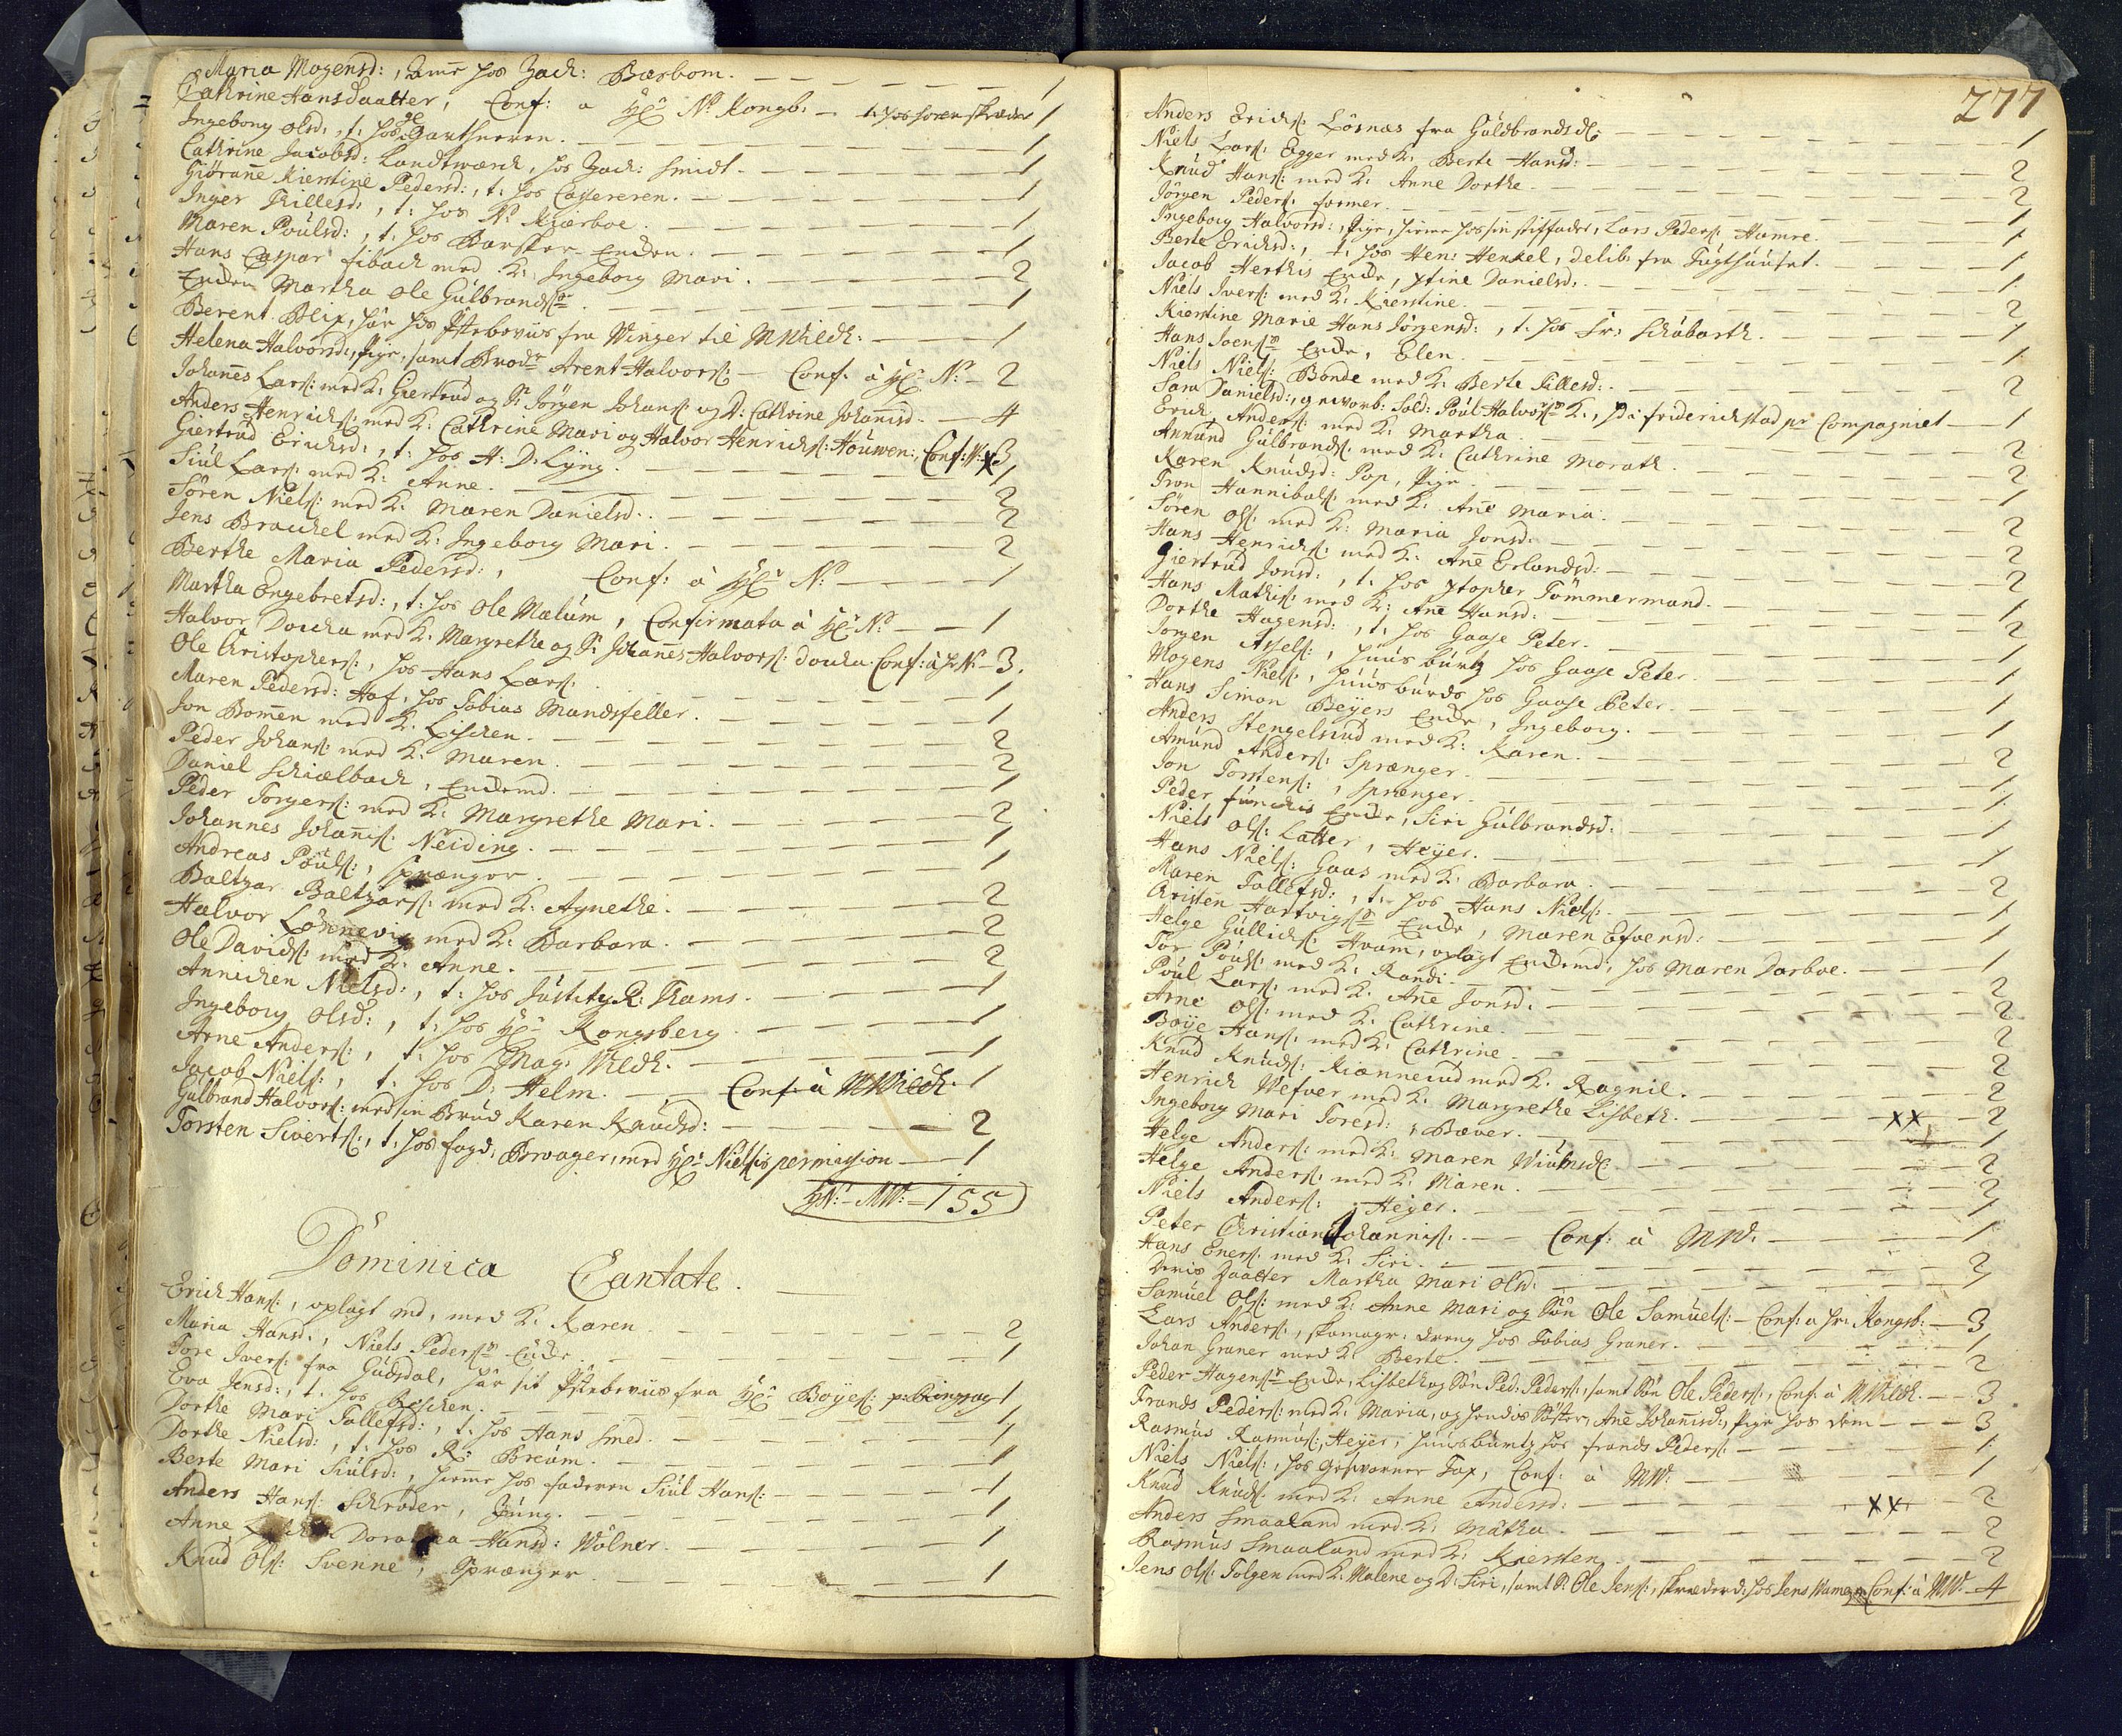 Maria Mogensd:, Amme hos Zach: Barbom. — 1
Cathrine Hansdaatter, Conf: a Hr: N: Kongb: — t: hos Soren skræder 1
Ingeborg Olsd:, t: hos Gartneren. — 1
Cathrine Jacobsd: Landtwerck, hos Zach: Smidt. — 1
Giøranne Kierstine Pedersd:, t: hos Cassereren. — 1
Inger Killesd:, t: hos N: Kierboe. — 1
Maren Poulsd:, t: hos Barsker-Enken. — 1
Hans Caspar Fibach med K: Ingeborg Mari. — 2
Enken Martha Ole Gulbrandsøns. — 1
Berent Blix, har hos Skrebeviis fra Winger til M Wildh: — 1
Helena Halvorsd:, Pige, samt Brodr Arent Halvors: — Conf. à Hr: N: — 2
Johannes Lars: med K: Giertrud og S: Jørgen Johans: og D: Cathrine Johannisd. — 4
Anders Henrichs: med K: Cathrine Mari og Halvor Henrichs: Houwen: Conf: N: x 3
Giertrud Erichsd:, t: hos H: D: Lyng. — 1
Siul Lars: med K: Anne. — 2
Søren Niels: med K: Maren Danielsd. — 2
Jens Brauchel med K: Ingeborg Mari. — 2
Berthe Maria Pedersd:, Conf: à Hr: N: — 1
Martha Engebretsd:, t: hos Ole Mælum, Confirmata à Hr: N: — 1
Halvor Doucka med K: Margrethe og S: Johannes Halvors: Doucka. Conf: à Hr N: — 3.
Ole Christophers:, hos Hans Lars: — 1
Maren Pedersd: Haf, hos Tobias Mandsfeller. — 1
Jon Bomen med K: Lischen. — 2
Peder Johans: med K: Maren. — 2
Daniel Schielbach, Enckemd. — 1
Peder Torgers: med K: Margrethe Mari. — 2
Johannes Johannis: Neiding. — 1
Andreas Pouls:, Sprænger. — 1
Baltzar Baltzars: med K: Agnethe. — 2
Halvor Lønnevig med K: Barbara. — 2
Ole Davids: med K: Anne. — 2
Annichen Nielsd:, t: hos Justitz R: Thams. — 1
Ingeborg Olsd:, t: hos Hr: Kongsberg. — 1
Arne Anders:, t: hos Mag: Wildh. — 1
Jacob Niels:, t: hos D: Helm. — Conf: à M Wildh. 1
Gulbrand Halvors: med sin Brud Karen Knudsd: — 2
Torsten Siverts:, t: hos fogd: Brwager, med Hr: Nielsis permission — 1
HN: — MW: — 155
Dominica Cantate.
Erich Hans:, oplagt md, med K: Karen — 2
Maria Hansd:, Niels Peders: Encke. — 1
Tore Ivers: fra Gudsdal, har sit Skrebeviis fra Hr: Boyes: — 1
Eva Jensd:, t: hos — 1
Dorthe Mari Tollefsd:, t: hos Hans Smed. — 1
Dorthe Nielsd:, t: hos R: Breum. — 1
Berte Mari Siulsd:, hieme hos faderen Siul Hans: — 1
Anders Hans: Schrøder, Jung. — 1
Anne Dorothea Hansd: Wølner. — 1
Knud Ols: Svenne, Sprænger. — 1
277
Anders Erichs: Løsnæs fra Guldbrandsdl: — 1
Niels Lars: Egger med K: Berte Hansd: — 2
Knud Hans: med K: Anne Dorthe. — 2
Jørgen Peders: former. — 1
Ingeborg Halvorsd:, Pige, hieme hos sin stiffader, Lars Peders: Hamre. — 1
Berte Erichsd:, t: hos Hen: Henkel, delib: fra Tugthuuset. — 1
Jacob Herthis Encke, Stine Danielsd: — 1
Niels Ivers: med K: Kierstine. — 2
Kierstine Marie Hans Jørgensd:, t: hos Sr: Schubarth. — 1
Hans Joens: Encke, Elen. — 1
Niels Niels: Bonde med K: Berte Pillesd: — 2
Sara Danielsd:, gevorb: Sold: Poul Halvors: K:, pa: Friderichstad pr Compagniet — 1
Erich Anders: med K: Martha. — 2
Amund Gulbrands: med K: Cathrine Morath. — 2
Karen Knudsd: Pop, Pige. — 1
Tron Hannibals: med K: Ane Maria. — 2
Søren Ols: med K: Maria Jonsd: — 2
Hans Henrichs: med K: Ane Erlandsd: — 2
Giertrud Jonsd:, t: hos Stopher Tømmermand. — 1
Hans Mathis: med K: Ane Hansd: — 2
Dorthe Hagensd:, t: hos Gaase Peter. — 1
Jørgen Assels:, huus burtz hos Gaase Peter. — 1
Mogens Niels:, huus burds hos Gaase Peter. — 1
Hans Simon Beyers Encke, Ingeborg. — 1
Anders Stengelsrud med K: Karen. — 2
Amund Anders: Sprænger. — 1
Jon Torstens:, Sprænger. — 1
Peder Funchis Encke, Siri Gulbrandsd: — 1
Niels Ols: Latter, Heyer. — 1
Hans Niels: Gaas med K: Barbara. — 2
Maren Tollefsd:, t: hos Hans Niels: — 1
Christen Hartvigs: Encke, Maren Efvensd: — 1
Helge Gullichs: Hvam, oplagt Enckemd, hos Maren Darboe. — 1
Tor Pouls: med K: Randi. — 2
Poul Lars: med K: Ane Jonsd: — 2
Arne Ols: med K: Cathrine. — 2
Boye Hans: med K: Cathrine. — 2
Knud Knuds: Kiennerud med K: Ragnil. — 2
Henrich Wefver med K: Margrethe Lisbeth. — 2
Ingeborg Mari Toresd:, Bæver. — xx 1
Helge Anders: med K: Maren — 2
Helge Anders: med K: Maren. — 2
Niels Anders:, Heyer. — 1
Peter Christian Johannis: — Conf: à MW: — 1
Hans Eners: med K: Siri. — 2
Deris Daatter Martha Mari Olsd: — 1
Samuel Ols: med K: Anne Mari og Søn Ole Samuels: — Conf: a Hr: Kongsb: — 3
Lars Anders:, skomagr: dreng hos Tobias Graner. — 1
Johan Graner med K: Berte. — 2
Peder Hagens: Encke, Lisbeth og Søn Ped: Peders:, samt Søn Ole Peders:, Conf: à M Wildh. — 3
Frands Peders: med K: Maria, og hendis Søster, Ane Johannisd:, Pige hos dem — 3
Rasmus Rasmus:, Heyer, huusburtz hos frands Peders: — 1
Niels Niels:, hos Gesvorner Fax, Conf: à MW: — 1
Knud Knuds: med K: Anne Andersd: — xx 2
Anders Smaaland med K: Matha. — 2
Rasmus Smaaland med K: Kiersten. — 2
Jens Ols: Tolgen med K: Malene og D: Siri, samt S: Ole Jens:, skræderd: hos Jens Conf: à MW — 4